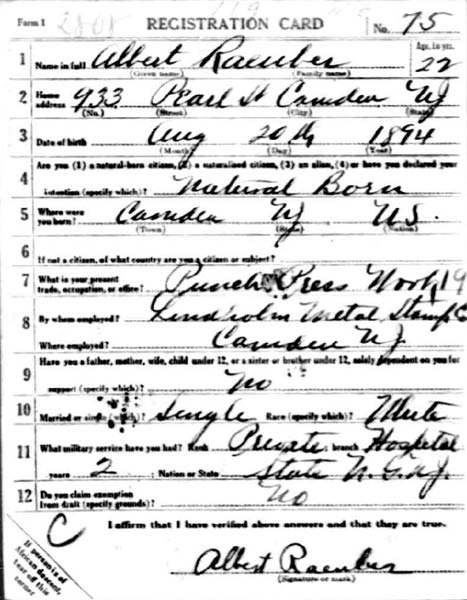 Form 1 REGISTRATION CARD No. 75
1 Name in full Albert Raeuber Age, in yrs. 22
(Given name) (Family name)
2 Home address 933 Pearl St Camden NJ
(No.) (Street) (City) (State)
3 Date of birth Aug 20th 1894
(Month) (Day) (Year)
4 Are you (1) a natural-born citizen, (2) a naturalized citizen, (3) an alien, (4) or have you declared your
intention (specify which)? Natural Born
5 Where were you born? Camden NJ US.
(Town) (State) (Nation)
6 If not a citizen, of what country are you a citizen or subject?
7 What is your present trade, occupation, or office? Punch Press Work 19
8 By whom employed? Lindholm Metal Stamp Co
Where employed? Camden NJ
9 Have you a father, mother, wife, child under 12, or a sister or brother under 12, solely dependent on you for
support (specify which)? No
10 Married or single (which)? Single Race (specify which)? White
11 What military service have you had? Rank Private ; branch Hospital
years 2 ; Nation or State State N.G. NJ.
12 Do you claim exemption from draft (specify grounds)? No
I affirm that I have verified above answers and that they are true.
C
Albert Raeuber
(Signature or mark)
If person is of
African descent,
tear off this
corner